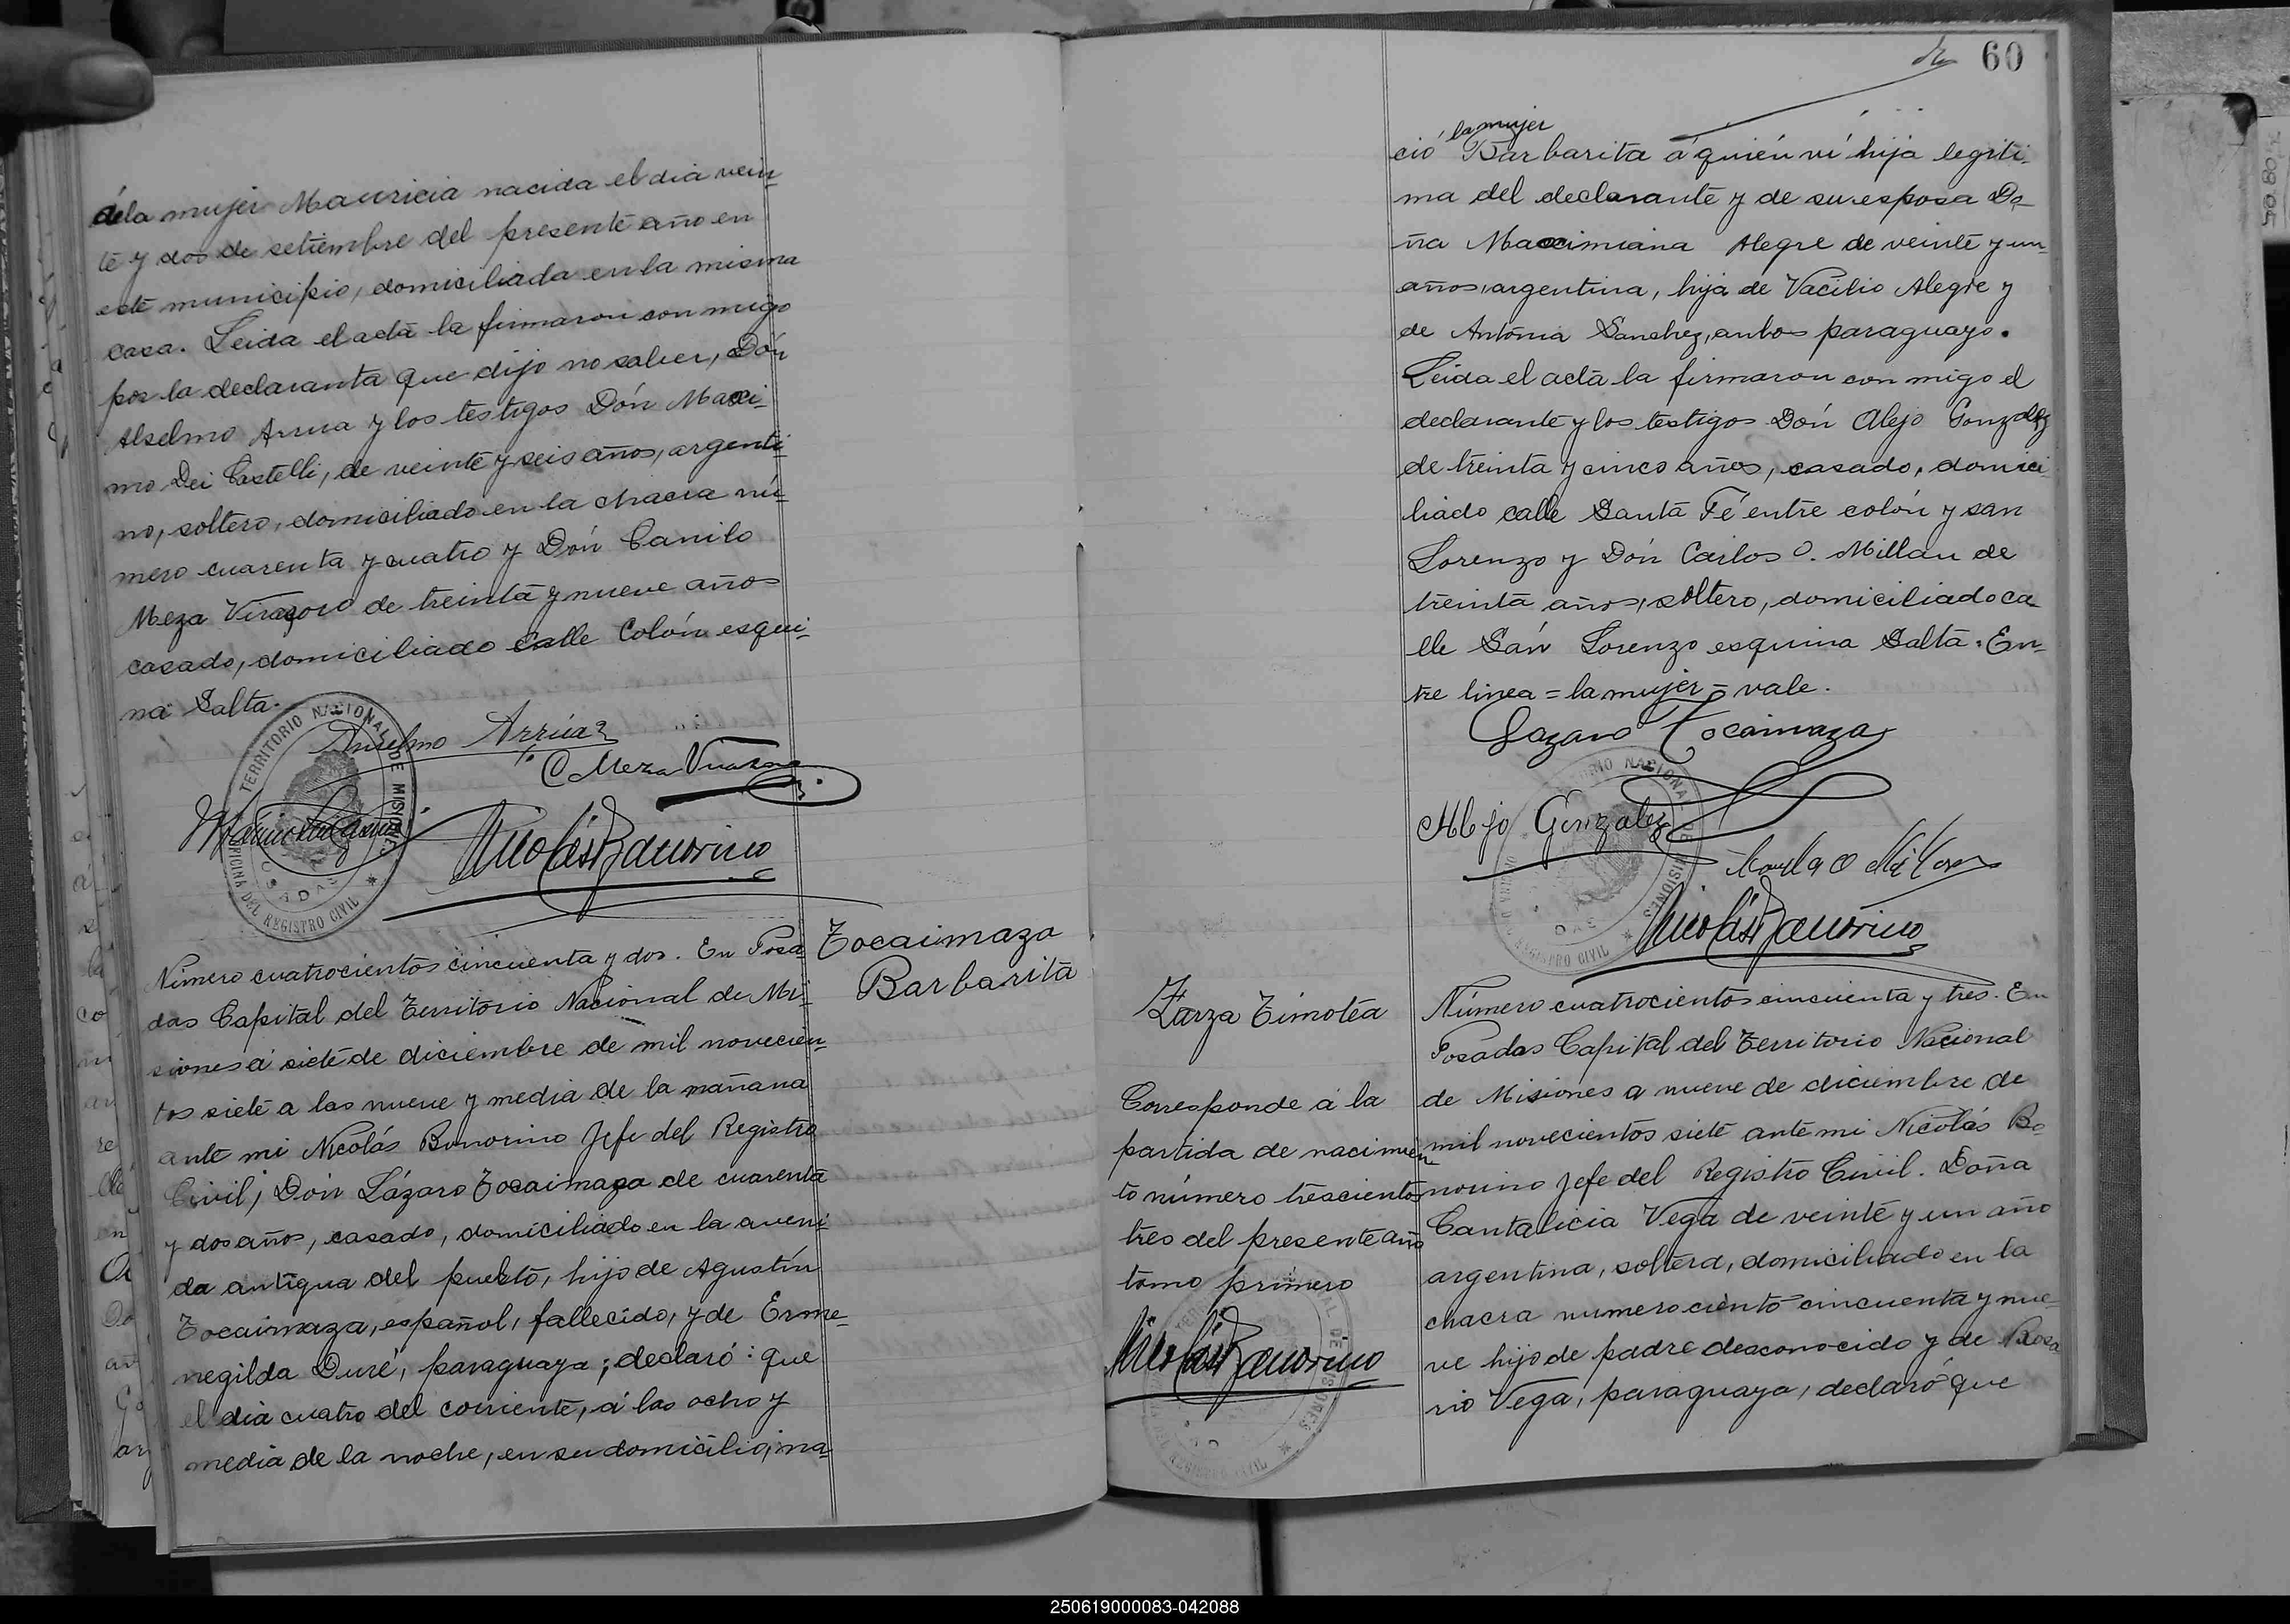 dela mujer Mauricia nacida el dia vein-
te y dos de setiembre del presente año en
este municipio, domiciliada en la misma
casa. Leida el acta la firmaron con migo
por la declaranta que dijo no saber, Dón
Alselmo Arrua y los testigos Dón Maxi-
mo Dei Castelli, de veinte y seis años, argenti
no, soltero, domiciliado en la chacra nú-
mero cuarenta y cuatro y Dón Canilo
Meza Virasoro de treinta y nueve años
casado, domiciliado calle Colón esqui-
na Salta.
Anselmo Arrúa
C Meza Virasoro
TERRITORIO NACIONAL DE MISIONES
OFICINA DEL REGISTRO CIVIL
POSADAS
Nicolás Bonorino
Número cuatrocientos cincuenta y dos. En Posa
das Capital del Territorio Nacional de Mi-
siones á siete de diciembre de mil novecien-
tos siete a las nueve y media de la mañana
ante mi Nicolás Bonorino Jefe del Registro
Civil, Dón Lázaro Tocaimaza de cuarenta
y dos años, casado, domiciliado en la aveni
da antigua del puerto, hijo de Agustín
Tocaimaza, español, fallecido, y de Erme-
negilda Duré, paraguaya; declaró: que
el dia cuatro del corriente, á las ocho y
media de la noche, en su domicilio, na-
Tocaimaza
Barbarita
60
la mujer
ció Barbarita á quién ví hija legiti-
ma del declarante y de su esposa Do-
ña Maximiana Alegre de veinte y un
años, argentina, hija de Vacilio Alegre y
de Antonia Sanchez, anbos paraguayo.
Leida el acta la firmaron con migo el
declarante y los testigos Dón Alejo Gonzalez
de treinta y cinco años, casado, domici
liado calle Santa Fé entre colón y san
Lorenzo y Dón Carlos O. Millan de
treinta años, soltero, domiciliado ca-
lle Sán Lorenzo esquina Salta. En-
tre linea = la mujer = vale.
Lazaro Tocaimaza
Alejo Gonzalez
Carlos O Millan
Nicolás Bonorino
Zarza Timotéa
Corresponde á la
partida de nacimien
to número trescientos
tres del presente año
tomo primero
Nicolás Bonorino
Número cuatrocientos cincuenta y tres. En
Posadas Capital del Territorio Nacional
de Misiones a nueve de diciembre de
mil novecientos siete ante mi Nicolás Bo
norino Jefe del Registro Civil. Doña
Cantalicia Vega de veinte y un año
argentina, soltera, domiciliado en la
chacra numero ciento cincuenta y nue-
ve hijo de padre desconocido y de Rosa
rio Vega, paraguaya, declaró que
250619000083-042088